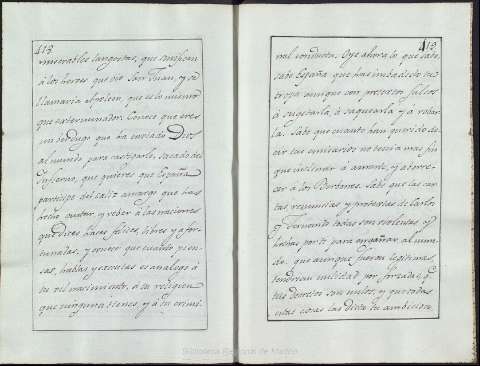 418
miserables langostas, que infician
á los hereges, que vio San Juan, y se
llamaria Apoleon, que es lo mismo
que exterminador. Conoce que eres
un verdugo que ha enviado Dios
al mundo para castigarlo, sacado del
Infierno, que quieres que España
participe del caliz amargo que has
hecho gustar, y beber á las naciones
que dices haces felices, libres y afor-
tunadas, y conocer que cuanto pien-
sas, hablas y executas es analogo á
tu vil nacimiento, á tu religion
que ninguna tienes, y á tu crimi-
419
nal conducta. Oye ahora lo que sabe,
sabe España que has invadido su
tropa enemiga con pretextos falsos
á sugetarla, á saquearla y á robar-
la. Sabe que cuanto han querido de-
cir tus emisarios no tenia mas fin
que inclinar á amarte, y aborre-
cer á los Borbones. Sabe que las car-
tas, renuncias y protestas de Carlos
y Fernando todas son violentas, y
hechas por ti para engañar al mun-
do: que aunque fueran legitimas,
tendrian nulidad por forzadas, q.e
tus decretos son nulos, y que todas
estas cosas las dicta tu ambicion
Biblioteca Regional de Madrid